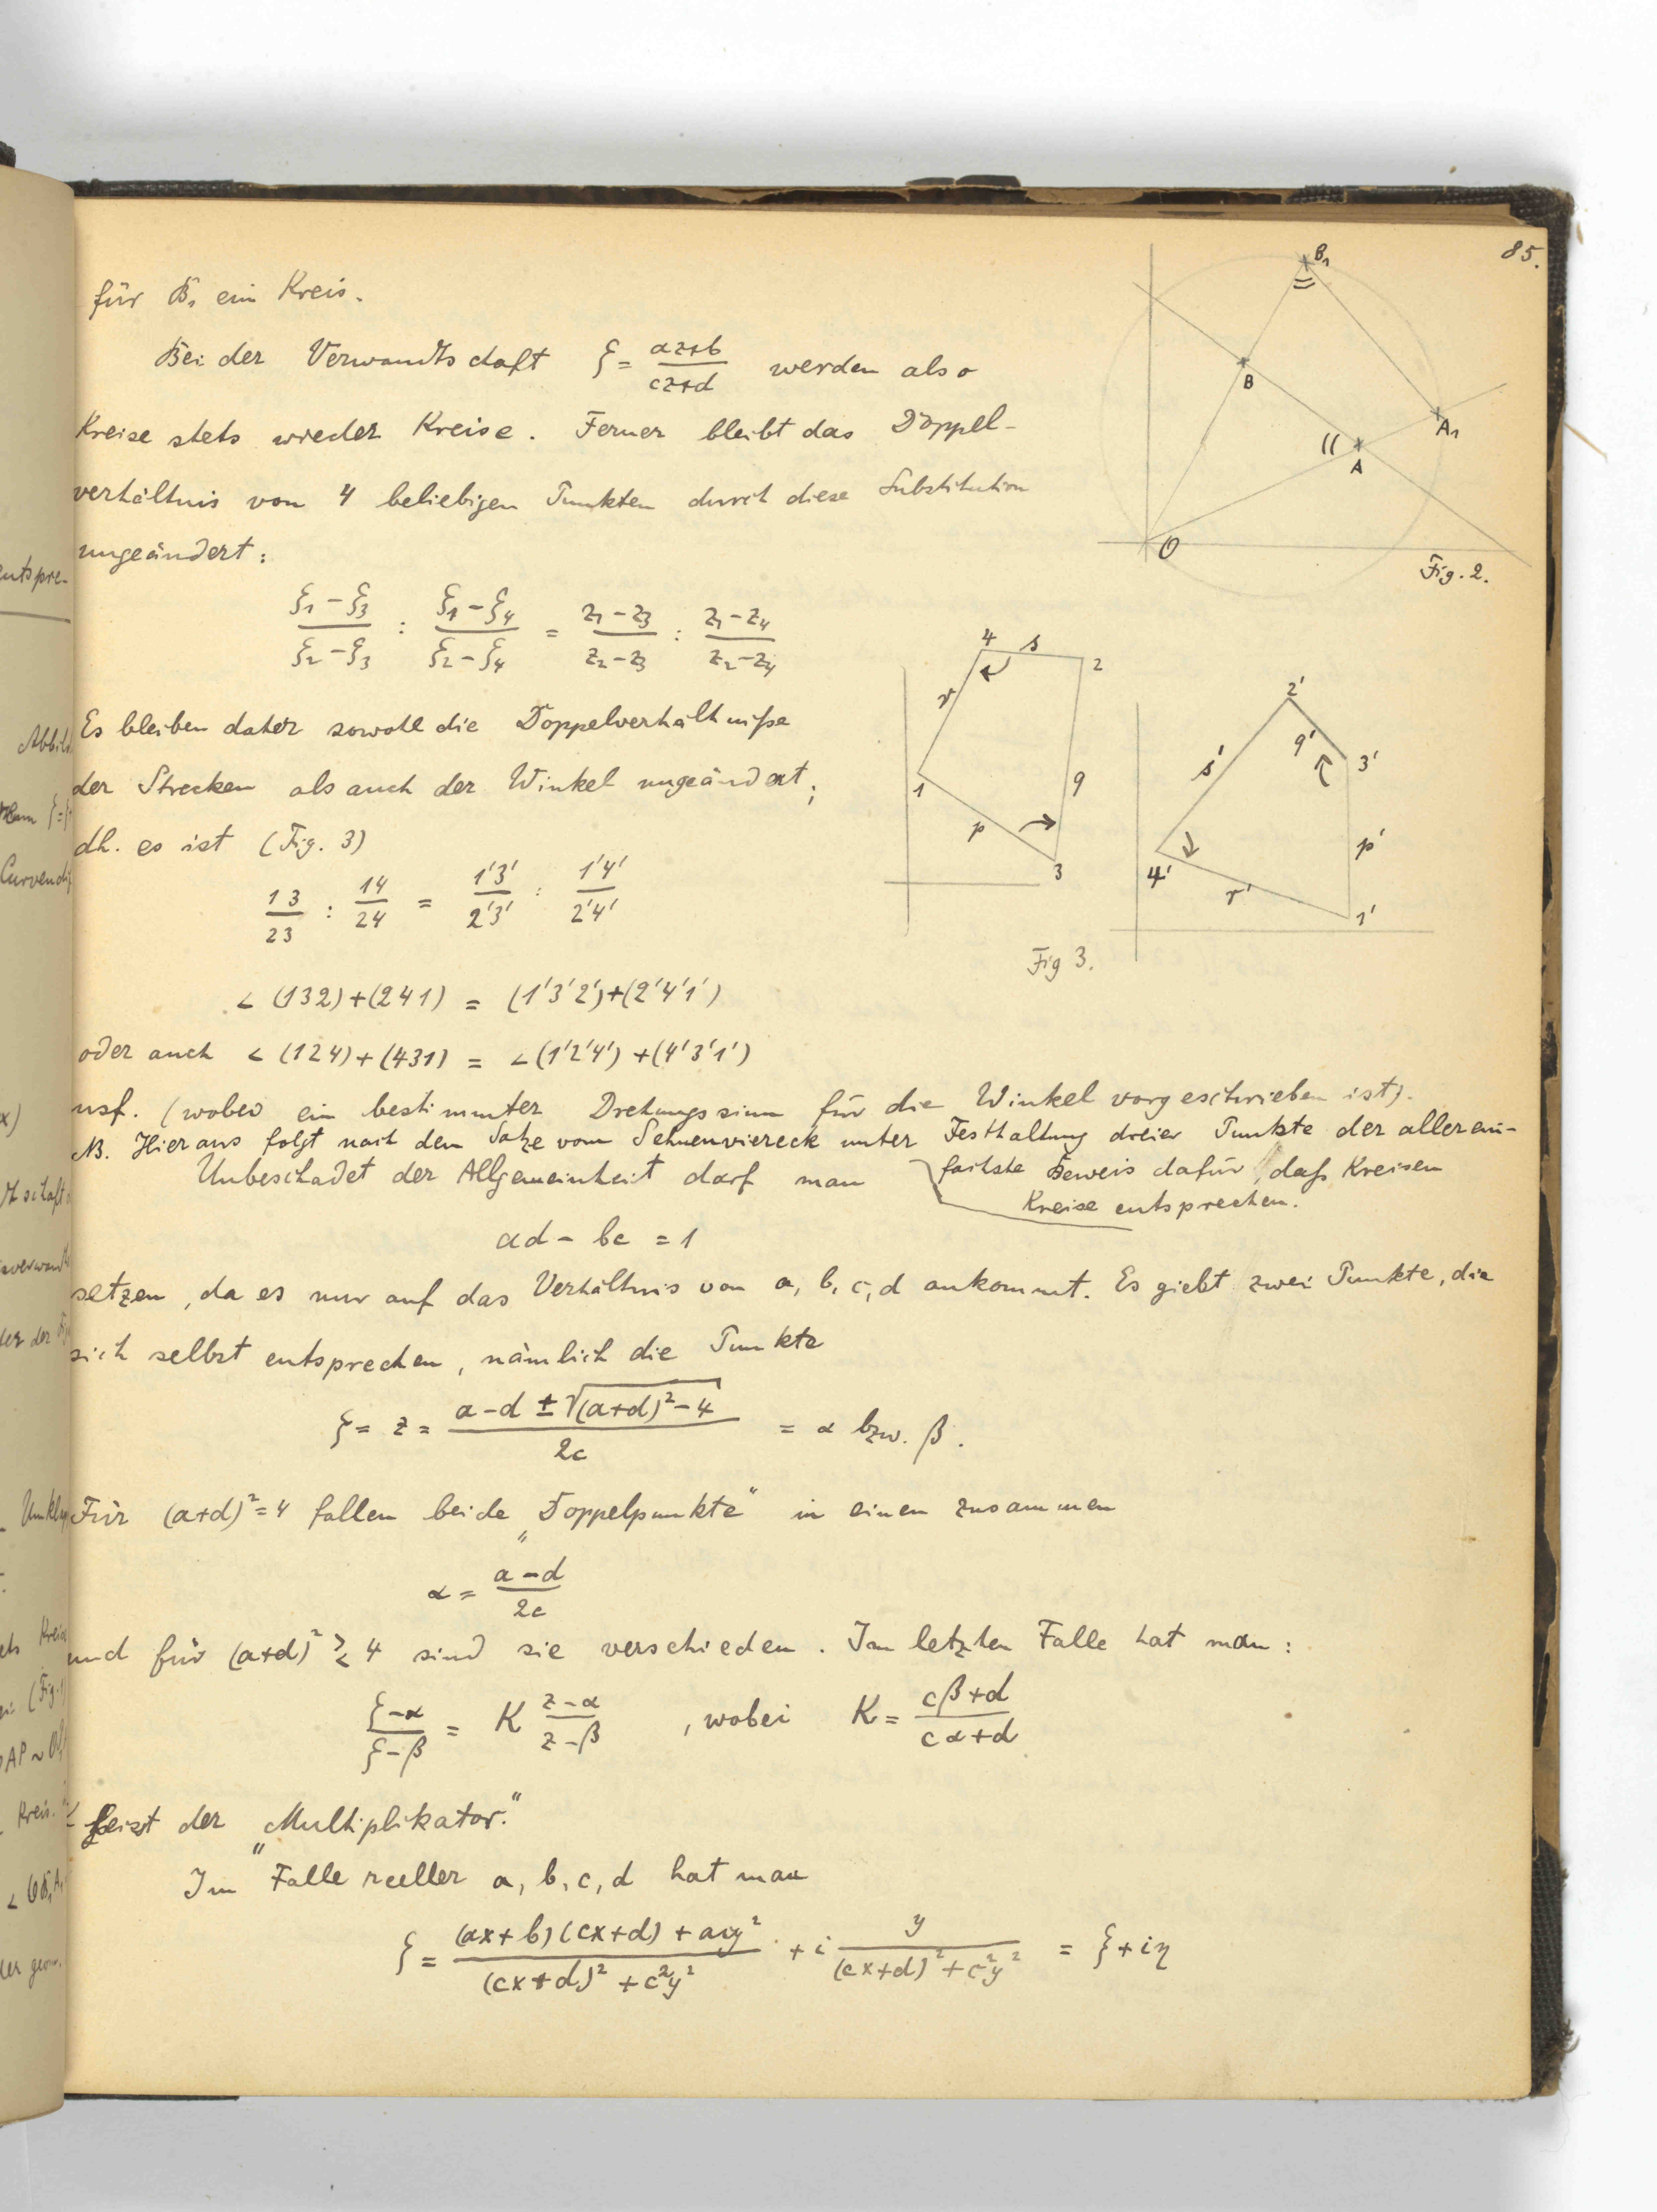 85.
für B₁ ein Kreis.
Bei der Verwandtschaft ζ = (az+b)/(cz+d) werden also
Kreise stets wieder Kreise. Ferner bleibt das Doppel-
verhältnis von 4 beliebigen Punkten durch diese Substitution
ungeändert:
(ζ₁-ζ₃)/(ζ₂-ζ₃) : (ζ₁-ζ₄)/(ζ₂-ζ₄) = (z₁-z₃)/(z₂-z₃) : (z₁-z₄)/(z₂-z₄)
Es bleiben daher sowohl die Doppelverhältniße
der Strecken als auch der Winkel ungeändert;
dh. es ist (Fig. 3)
13/23 : 14/24 = 1'3'/2'3' : 1'4'/2'4'
∠ (132)+(241) = (1'3'2')+(2'4'1')
oder auch ∠ (124)+(431) = ∠ (1'2'4')+(4'3'1')
usf. (wobei ein bestimmter Drehungssinn für die Winkel vorgeschrieben ist).
NB. Hieraus folgt nach dem Satze vom Sehnenviereck unter Festhaltung dreier Punkte der allerein-
fachste Beweis dafür, daß Kreisen
Kreise entsprechen.
Unbeschadet der Allgemeinheit darf man
ad - bc = 1
setzen, da es nur auf das Verhältnis von a, b, c, d ankommt. Es giebt zwei Punkte, die
sich selbst entsprechen, nämlich die Punkte
ζ = z = (a-d ± √((a+d)²-4))/2c = α bzw. β.
Für (a+d)²=4 fallen beide „Doppelpunkte“ in einen zusammen
α = (a-d)/2c
und für (a+d)² ≷ 4 sind sie verschieden. Im letzten Falle hat man:
(ζ-α)/(ζ-β) = K (z-α)/(z-β) , wobei K = (cβ+d)/(cα+d)
heisst der „Multiplikator.“
Im Falle reeller a, b, c, d hat man
ζ = ((ax+b)(cx+d)+acy²)/((cx+d)²+c²y²) + i y/((cx+d)²+c²y²) = ξ+iη
B₁
B
A₁
A
O
Fig. 2.
4 s 2
r
1 q
p
3
2'
s' q' 3'
p'
4'
r' 1'
Fig 3.
entspre-
Curvendi